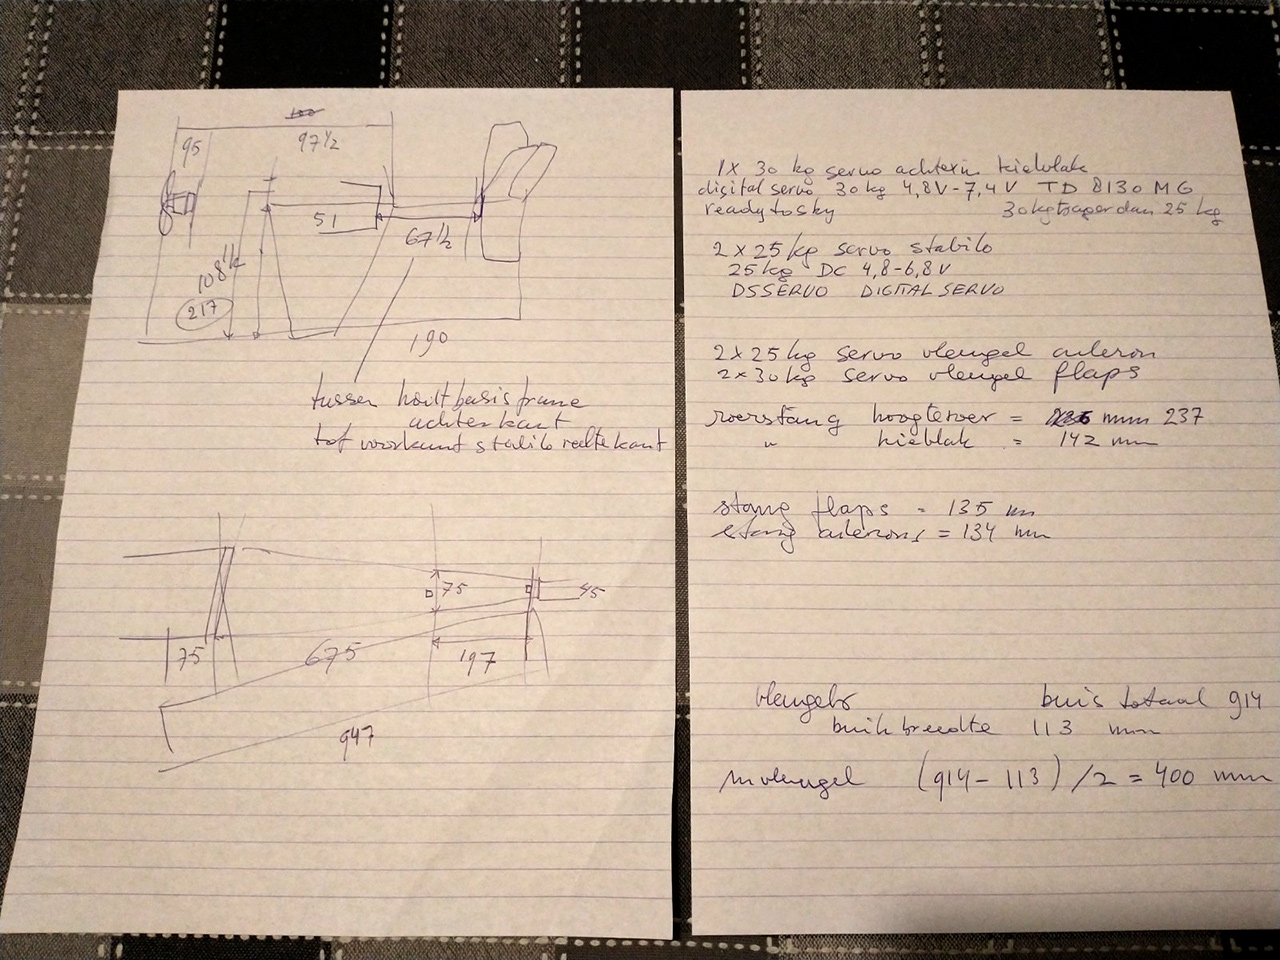 100
95
97 1/2
51
67 1/2
108 1/2
217
190
tussen hout basis frame
achterkant
tot voorkant stabilo rechte kant
75
45
75
675
197
947
1x 30 kg servo achterin kielvlak
digital servo 30 kg 4,8V-7,4V TD 8130 MG
readytosky 30kg trager dan 25 kg
2 x 25 kg servo stabilo
25 kg DC 4,8-6,8V
DSSERVO DIGITALSERVO
2 x 25 kg servo vleugel aileron
2 x 30 kg servo vleugel flaps
roerstang hoogteroer = mm 237
" kielvlak = 142 mm
stang flaps = 135 mm
stang ailerons = 134 mm
vleugels buis totaal 914
buikbreedte 113 mm
in vleugel (914-113)/2 = 400 mm